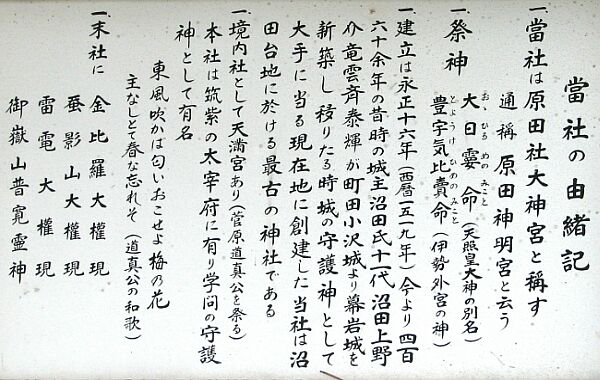 當社の由緒記
一、當社は原田社大神宮と稱す
通稱原田神明宮と云う
一、祭神
大日孁命(天照皇大神の別名)
おゝひるめのみこと
豊宇気比賣命(伊勢外宮の神)
とようけひめのみこと
一、建立は永正十六年(西暦一五一九年)今より四百
六十余年の昔時の城主沼田氏十一代沼田上野
介竜雲斉泰輝が町田小沢城より幕岩城を
新築し移りたる時城の守護神として
大手に当る現在地に創建した当社は沼
田台地に於ける最古の神社である
一、境内社として天満宮あり(菅原道真公を祭る)
本社は筑紫の太宰府に有り学問の守護
神として有名
東風吹かば匂いおこせよ梅の花
主なしとて春な忘れそ(道真公の和歌)
一、末社に金比羅大權現
蚕影山大權現
雷電大權現
御嶽山普寛霊神